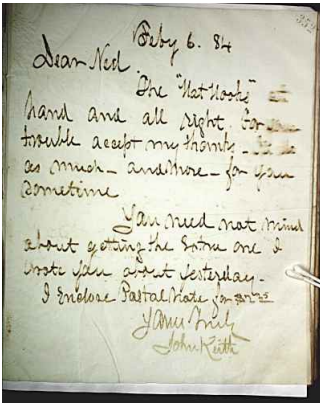 Feby 6. 84
Dear Ned
The "Hat Hooks" at
hand and all right for
trouble accept my thanks
as much - and more - for you
sometime
You need not mind
about getting the Extra one I
wrote you about yesterday -
I Enclose Postal Note for
Yours Truly
John Keith